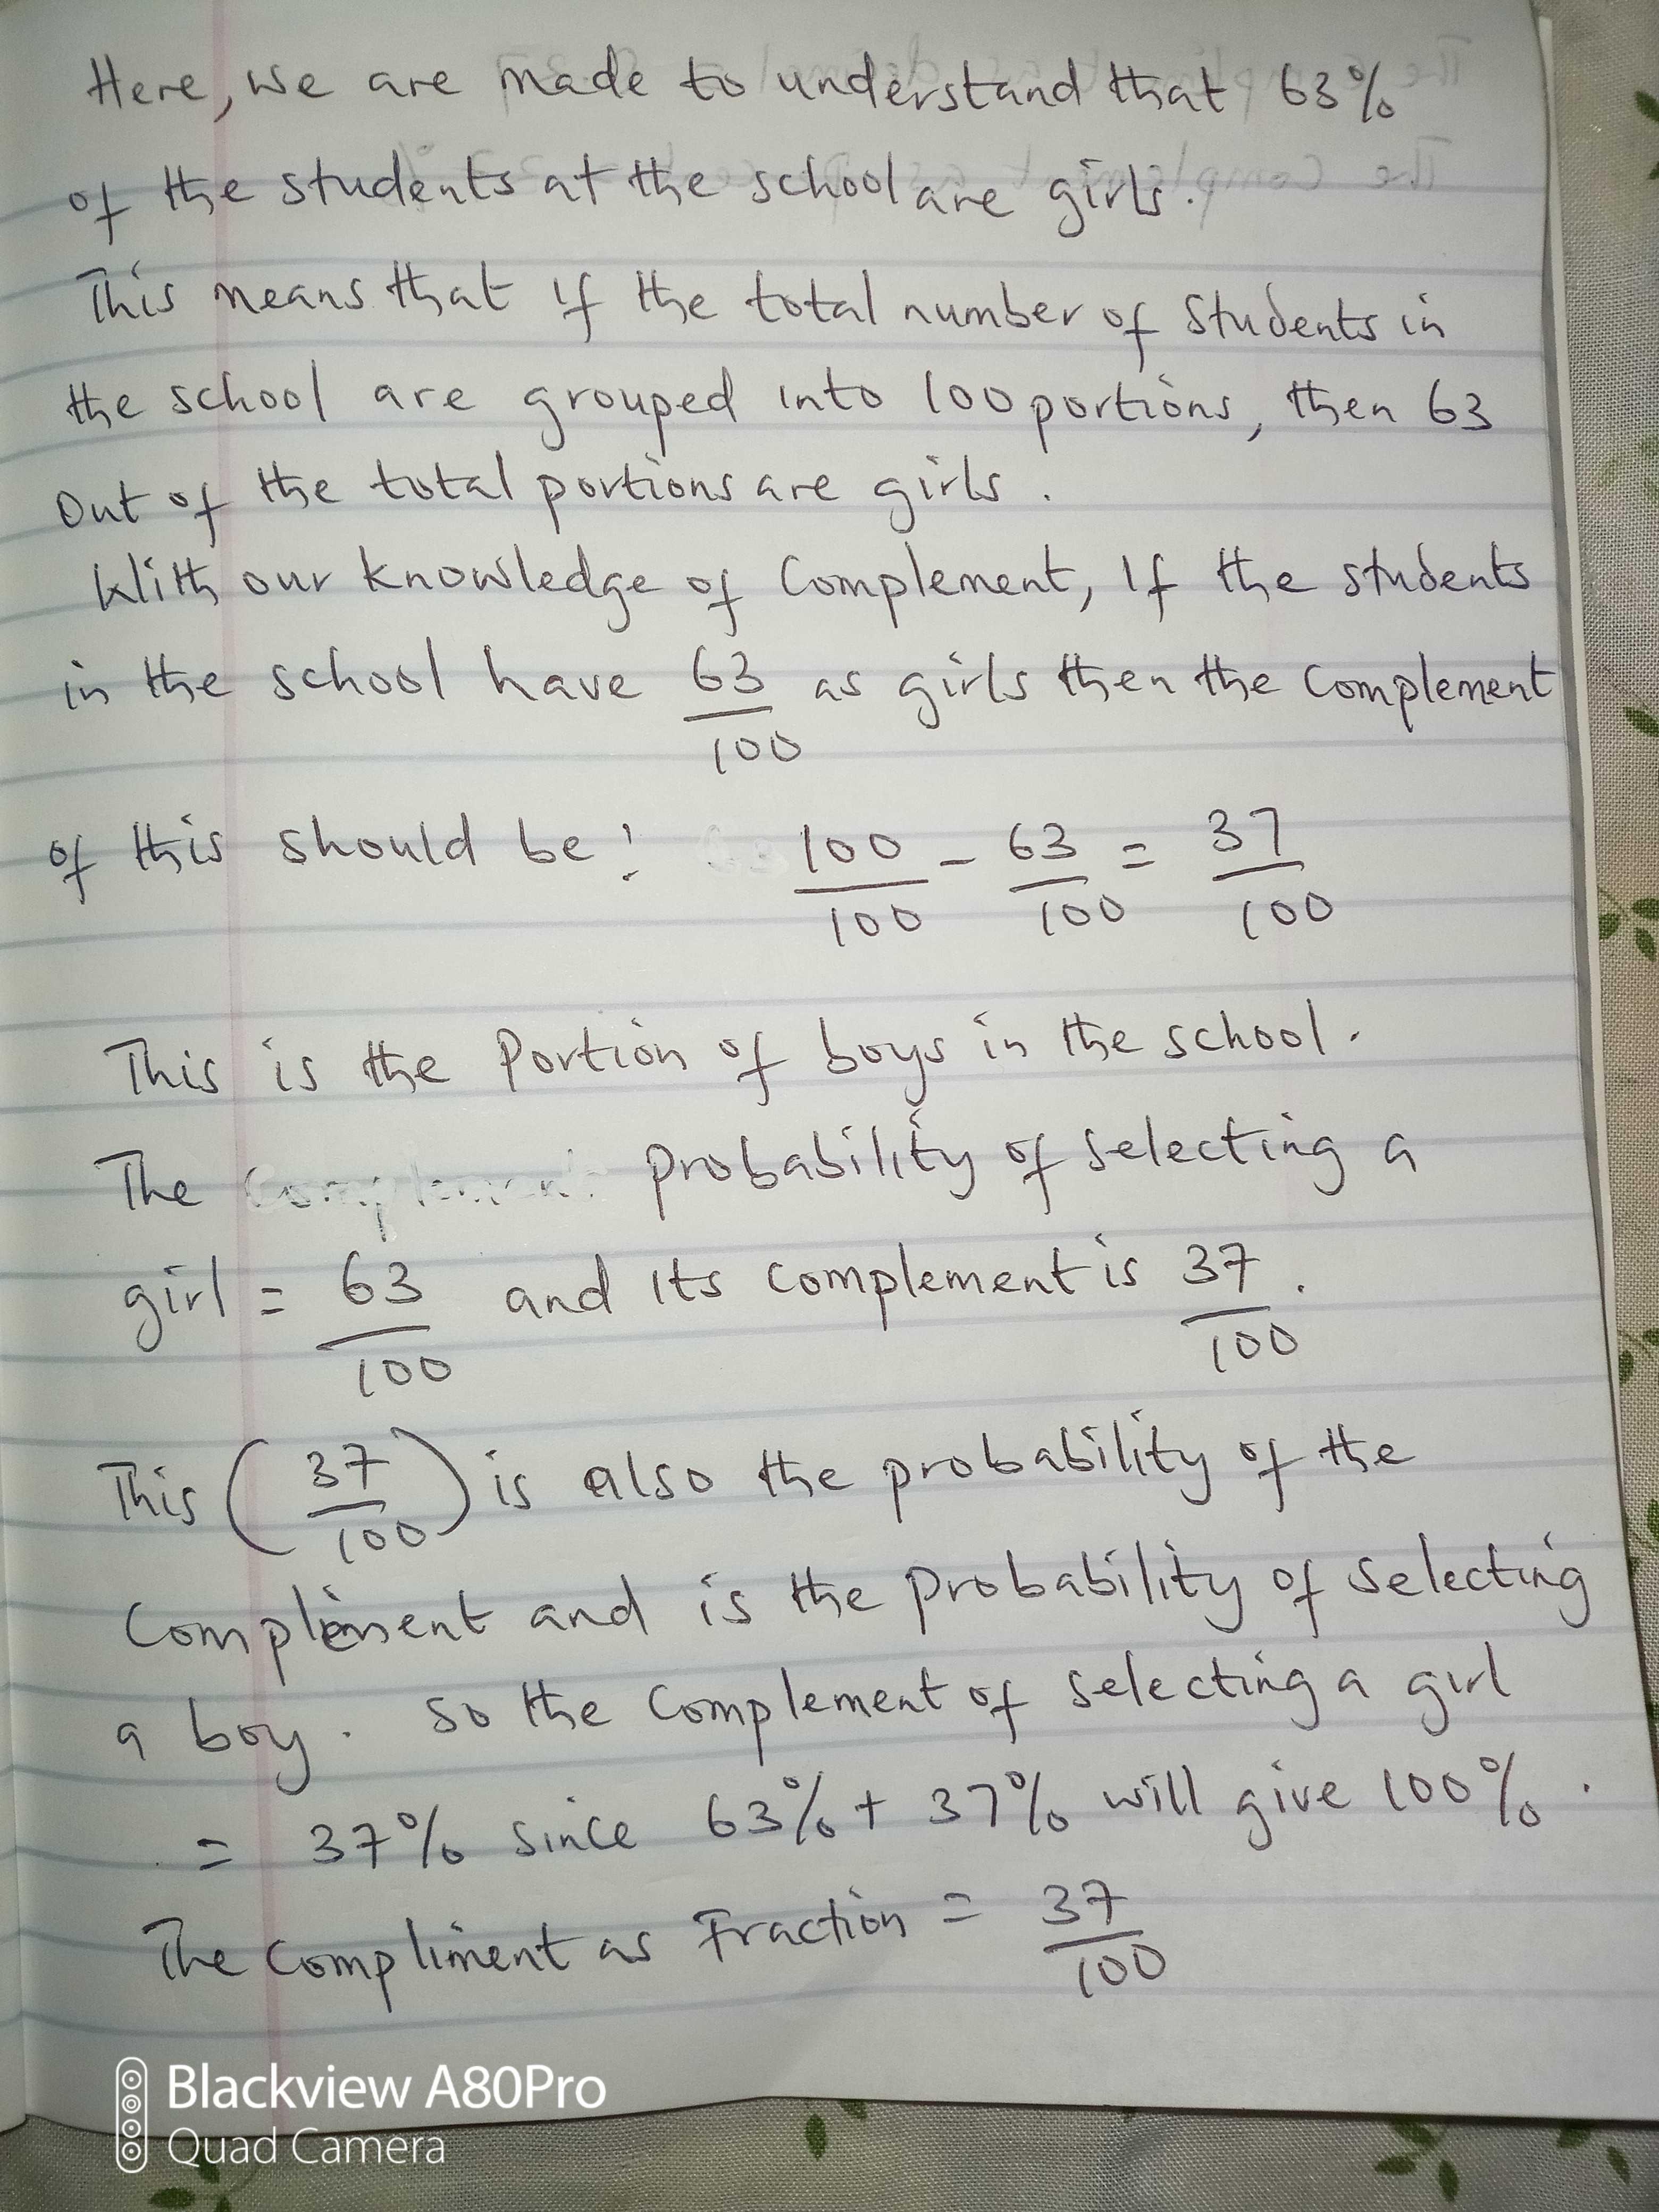 Here, we are made to understand that 63%
of the students at the school are girls.
This means that if the total number of students in
the school are grouped into 100 portions, then 63
Out of the total portions are girls.
With our knowledge of Complement, If the students
in the school have 63/100 as girls then the complement
of this should be: 100/100 - 63/100 = 37/100
This is the Portion of boys in the school.
The probability of selecting a
girl = 63/100 and its complement is 37/100.
This (37/100) is also the probability of the
Complement and is the probability of selecting
a boy. So the Complement of selecting a girl
= 37% since 63% + 37% will give 100%.
The Compliment as Fraction = 37/100
Blackview A80Pro
Quad Camera